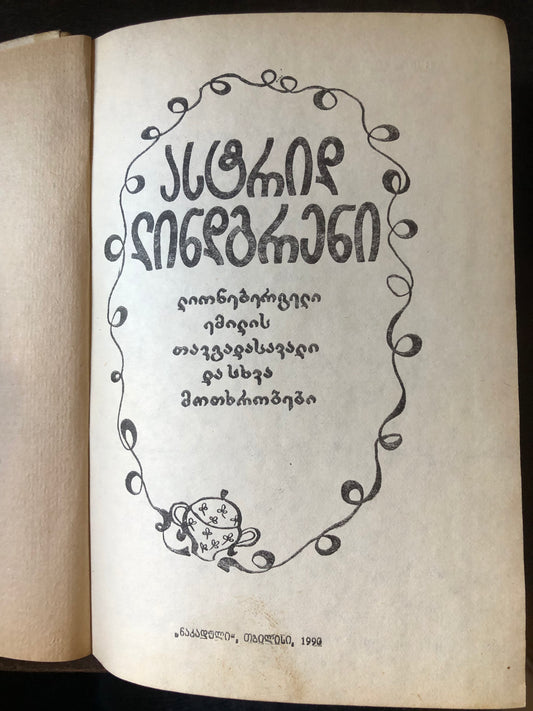 ასტრიდ
ლინდგრენი
ლიონებერგელი
ემილის
თავგადასავალი
და სხვა
მოთხრობები
„ნაკადული“, თბილისი, 1990